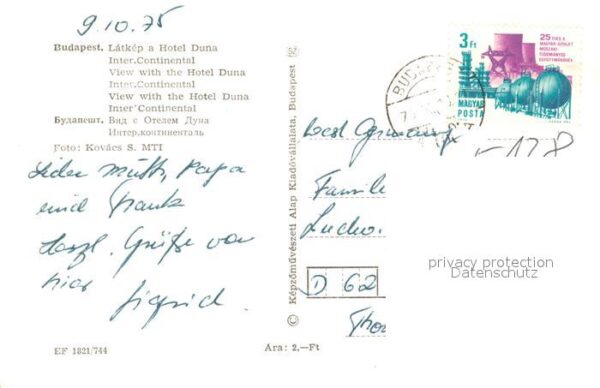 9.10.75
Budapest. Látkép a Hotel Duna
Inter.Continental
View with the Hotel Duna
Inter.Continental
View with the Hotel Duna
Inter'Continental
Будапешт. Вид с Отелем Дуна
Интер.континенталь
Foto: Kovács S. MTI
Papa
und Frank
Herzl. Grüße von
hier Sigrid.
EF 1821/744
© Képzőművészeti Alap Kiadóvállalata, Budapest
Ára: 2,—Ft
3 Ft
25 ÉVES A
MAGYAR-SZOVJET
MŰSZAKI
TUDOMÁNYOS
EGYÜTTMŰKÖDÉS
MAGYAR
POSTA
BUDAPEST
West Germany
Familie
Ludw.
D 62
privacy protection
Datenschutz